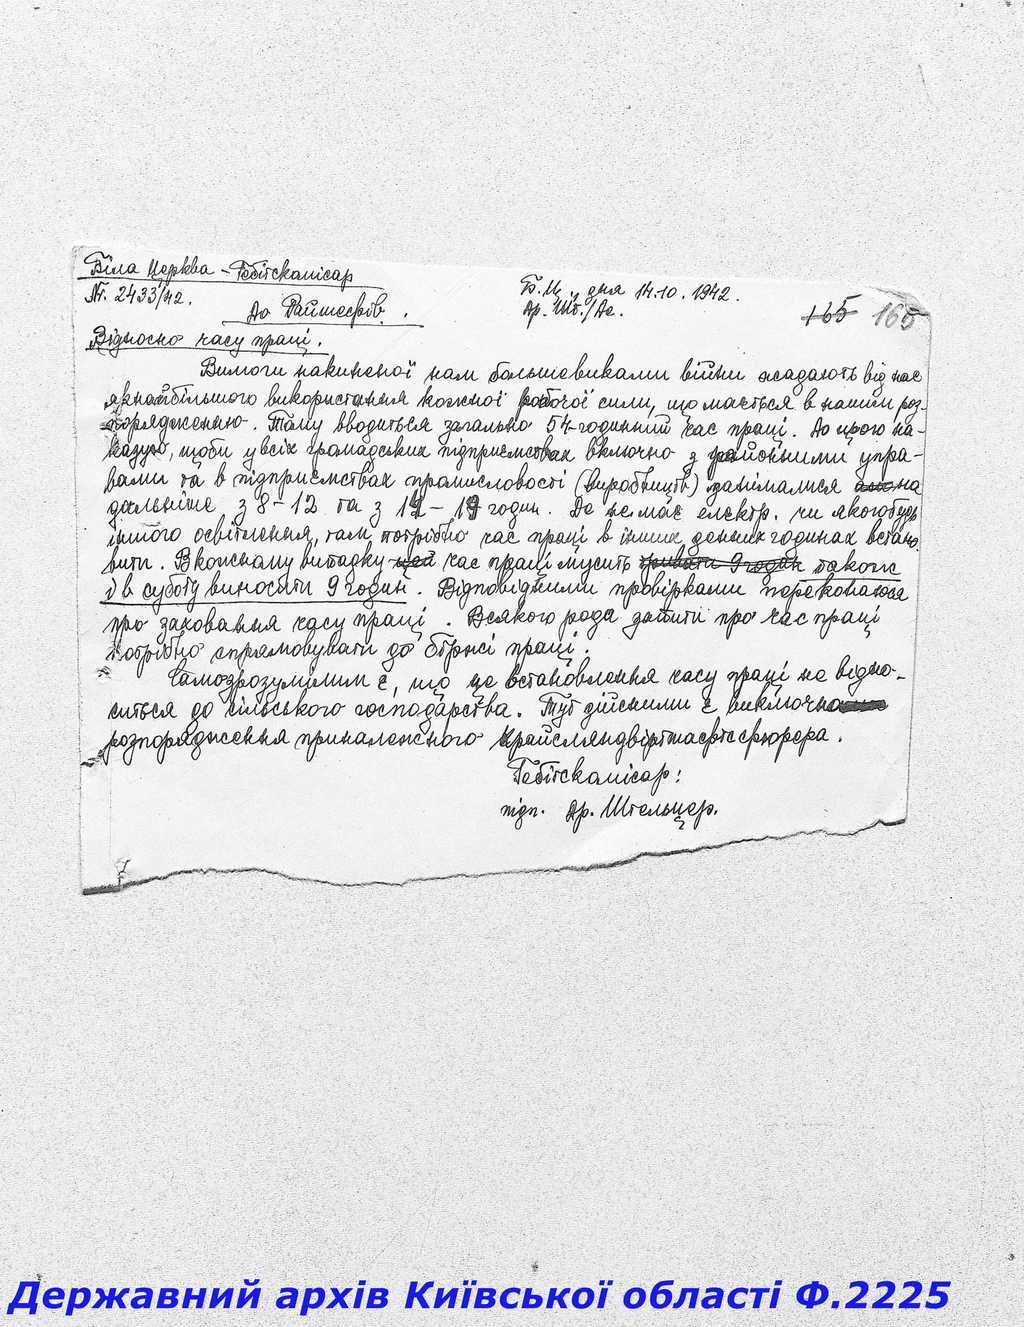 Біла Церква – Гебітскомісар
Nr. 2433/42.
Б.Ц., дня 14.10.1942.
Др. Шт./Ае.
До Райшефів.
165 165
Відносно часу праці.
Вимоги накиненої нам большевиками війни жадають від нас
якнайбільшого використання кожної робочої сили, що мається в нашім роз-
порядженню. Тому вводиться загально 54-годинний час праці. До цього на-
казую, щоби у всіх громадських підприємствах включно з районними упра-
вами та в підприємствах промисловості (виробництв) занімалися на
дальніше з 8–12 та з 14–19 годин. Де немає електр. чи якогобудь
іншого освітлення, там потрібно час праці в інших денних годинах встано
вити. В кожному випадку цей час праці мусить тривати 9 годин також
і в суботу виносити 9 годин. Відповідними провірками переконаюся
про заховання часу праці. Всякого рода запити про час праці
потрібно спрямовувати до біржі праці.
Самозрозумілим є, що це встановлення часу праці не відно-
ситься до сільського господарства. Тут дійсними є виключно
розпорядження приналежного Крайсляндвіртшафтсфюрера.
Гебітскомісар:
підп. Др. Штельцер.
Державний архів Київської області Ф.2225